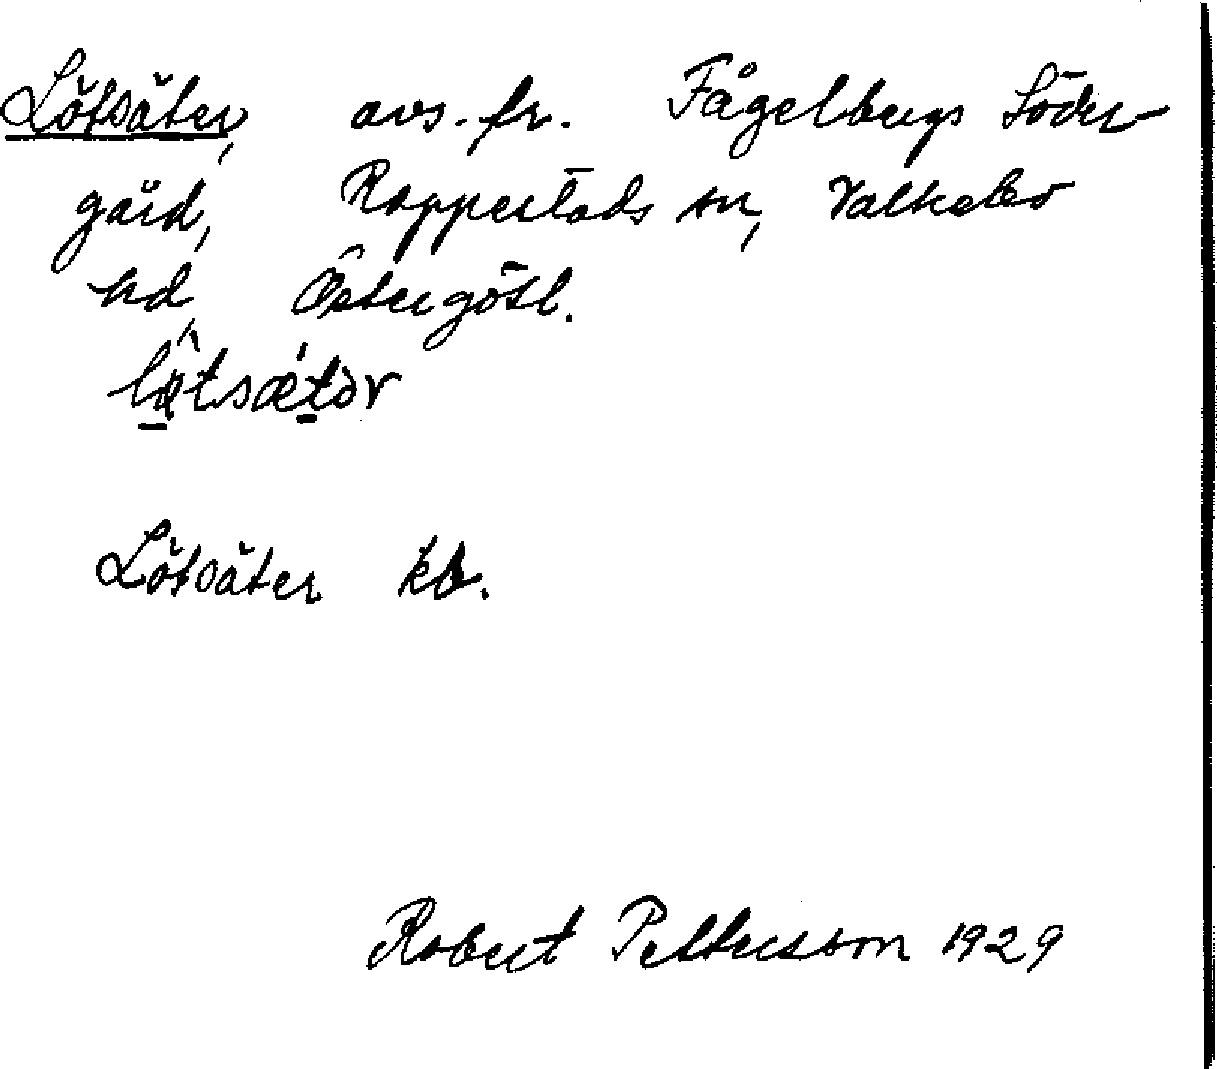 Lötsäter, avs. fr. Fågelbergs Söder-
gård, Rappestads sn, Valkebo
hd, Östergötl.
Lötsäter kb.
Robert Pettersson 1929